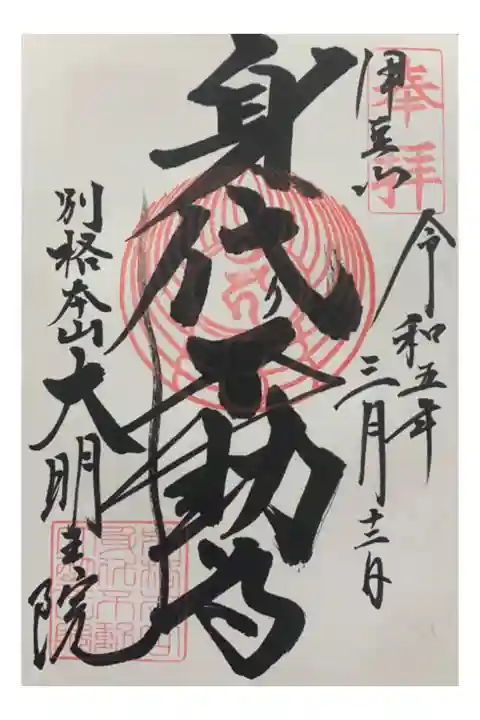 奉拝
伊豆山
令和五年
三月十三日
身代り不動尊
別格本山
大明王院